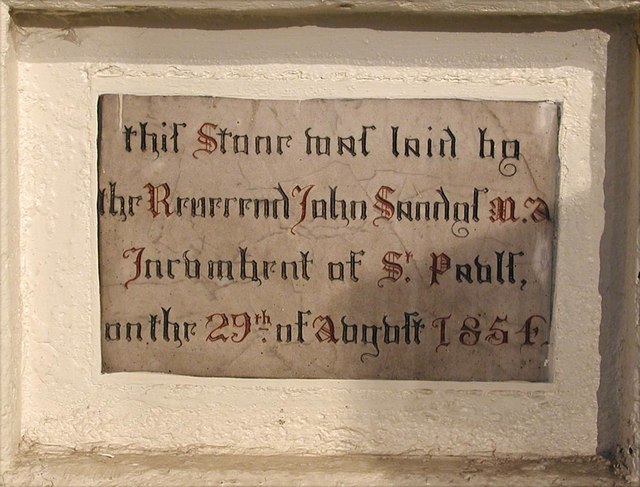 this Stone was laid by
the Reverend John Sandys M.A
Incumbent of St. Pauls,
on the 29th. of August 1854.